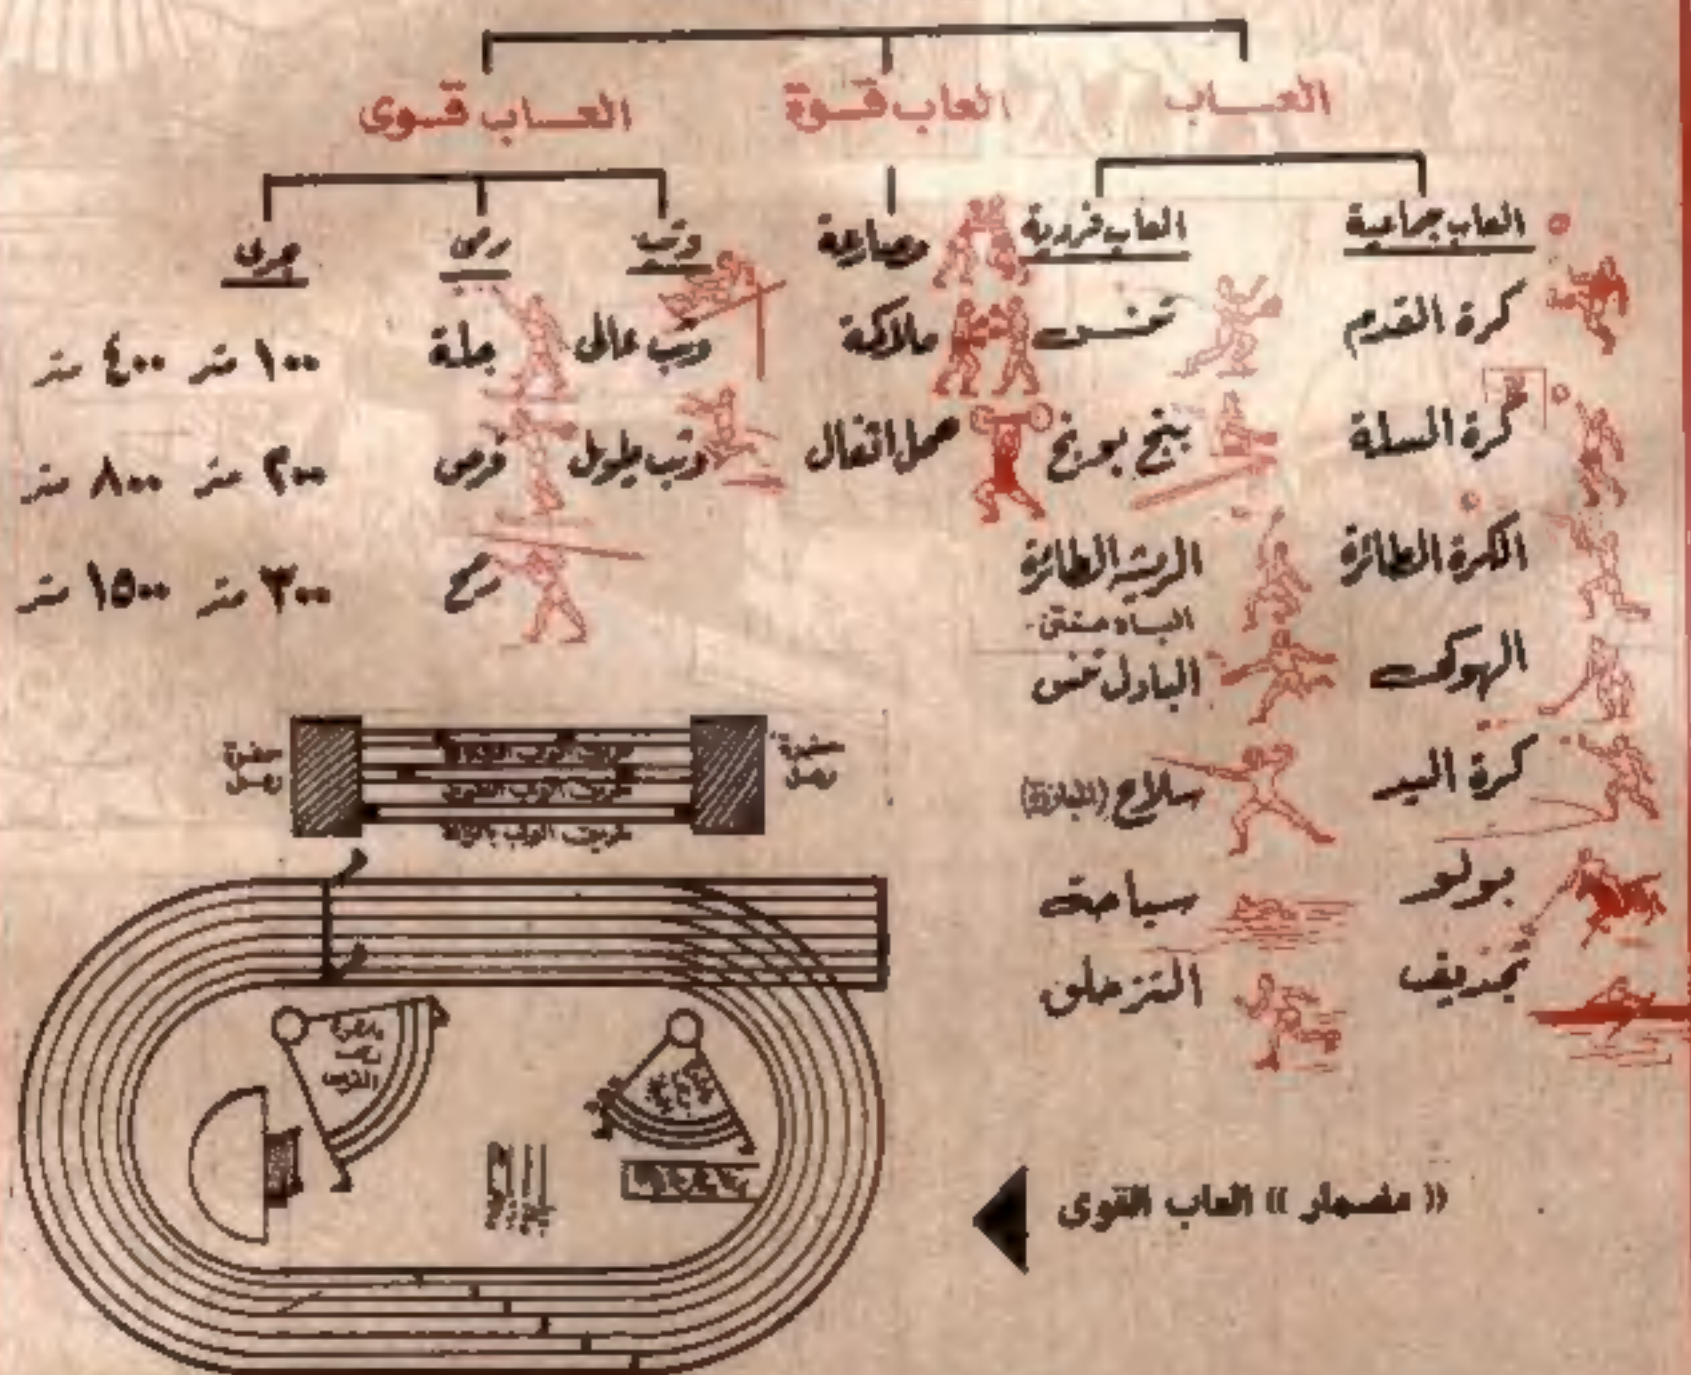 العاب
العاب قوة
العاب قوى
العاب جماعية
كرة القدم
كرة السلة
الكرة الطائرة
الهوكى
كرة اليد
بولو
تجديف
العاب فردية
تنس
بنج بونج
الريشة الطائرة
البادل تنس
سلاح (المبارزة)
سباحة
التزحلق
مصارعة
ملاكمة
حمل اثقال
وثب
وثب عالى
وثب طويل
رمى
جلة
قرص
رمح
جرى
١٠٠ متر ٤٠٠ متر
٢٠٠ متر ٨٠٠ متر
٣٠٠ متر ١٥٠٠ متر
حفرة
رمل
حفرة
رمل
« مضمار » العاب القوى